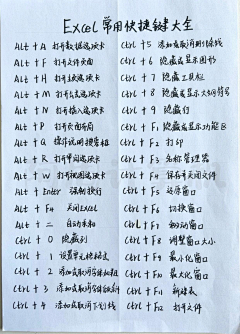 Excel 常用快捷键大全
Alt + A 打开数据选项卡
Alt + F 打开文件页面
Alt + H 打开主页选项卡
Alt + M 打开公式选项卡
Alt + N 打开插入选项卡
Alt + P 打开页面布局
Alt + Q 操作说明搜索框
Alt + R 打开审阅选项卡
Alt + W 打开视图选项卡
Alt + Enter 强制换行
Alt + F4 关闭EXCEL
Alt + = 自动求和
Ctrl + 0 隐藏列
Ctrl + 1 设置单元格格式
Ctrl + 2 添加或取消字体加粗
Ctrl + 3 添加或取消字体倾斜
Ctrl + 4 添加或取消下划线
Ctrl + 5 添加或取消删除线
Ctrl + 6 隐藏或显示图形
Ctrl + 7 隐藏工具栏
Ctrl + 8 隐藏或显示大纲符号
Ctrl + 9 隐藏行
Ctrl + F1 隐藏或显示功能区
Ctrl + F2 打印
Ctrl + F3 名称管理器
Ctrl + F4 保存并关闭文件
Ctrl + F5 还原窗口
Ctrl + F6 切换窗口
Ctrl + F7 移动窗口
Ctrl + F8 调整窗口大小
Ctrl + F9 最小化窗口
Ctrl + F10 最大化窗口
Ctrl + F11 新建表
Ctrl + F12 打开文件